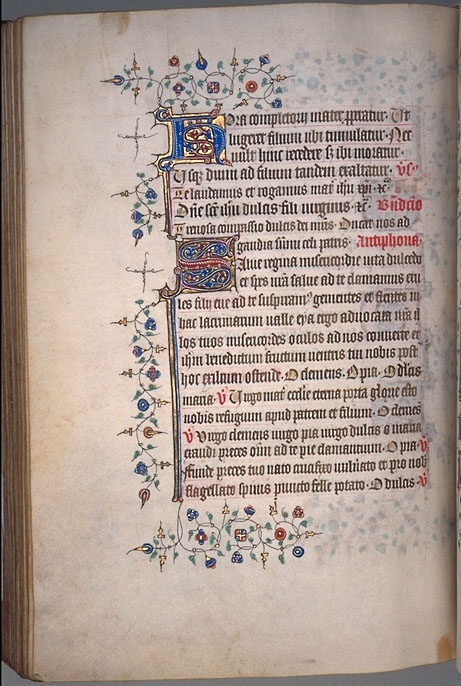 Hora completorii mater properatur. Ut
iungere filium ubi tumulatur. Nec
vult hinc recedere sed ibi moratur.
Usque dum ad filium tandem exaltatur. vs.
Te laudamus et rogamus mater ihu xpi. etc.
One scte ihu dulcis fili virginis. etc. Bndcio
Virginosa compassio dulcis dei mris. Ducat nos ad
gaudia summi celi patris. Antiphona.
Salve regina misericordie vita dulcedo
et spes nra salve ad te clamamus exu
les filii eve ad te suspiram9 gementes et flentes in
hac lacrimarum valle eya ergo advocata nra il
los tuos misericordes oculos ad nos converte et
ihm benedictum fructum ventris tui nobis post
hoc exilium ostende. O clemens. O pia. O dlcis
maria. V Virgo mater ecclie eterna porta glorie esto
nobis refugium apud patrem et filium. O clemes
V Virgo clemens virgo pia virgo dulcis o maria
exaudi preces oim ad te pie clamantium. O pia. V
Funde preces tuo nato crucifixo vulnerato et pro nob
flagellato spinis puncto felle potato. O dulcis. V